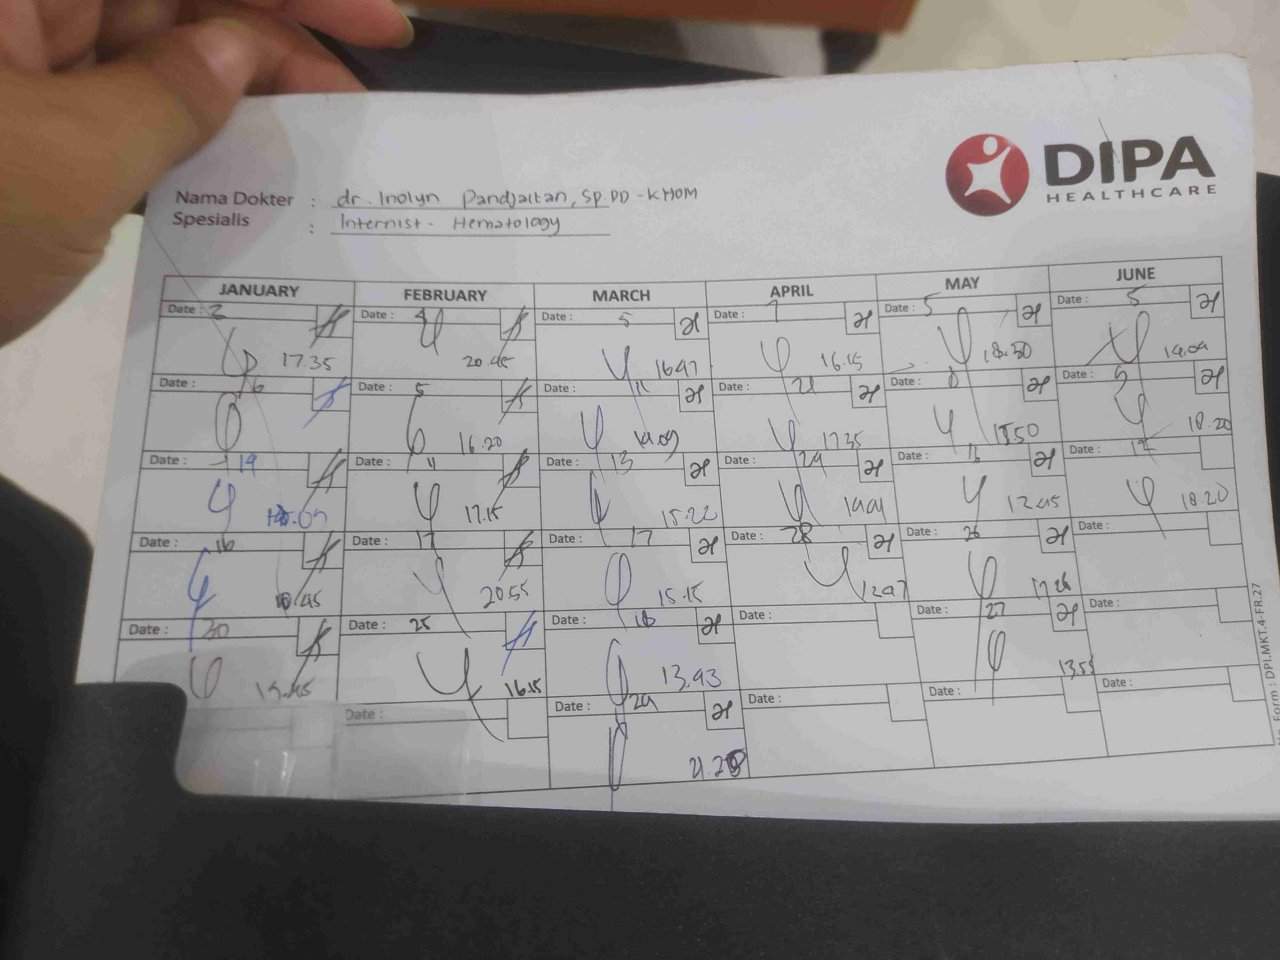 DIPA
HEALTHCARE
Nama Dokter : dr. Inolyn Pandjaitan, Sp.PD-KHOM
Spesialis : Internist - Hematology
JANUARY FEBRUARY MARCH APRIL MAY JUNE
Date : 2 Date : 4 Date : 5 Date : 7 Date : 5 Date : 5
17.35 20.45 16.47 16.15 18.50 19.09
Date : 6 Date : 5 Date : 11 Date : 21 Date : 8 Date :
16.20 19.09 17.35 15.50 18.20
Date : 14 Date : 11 Date : 13 Date : 24 Date : Date :
17.15 15.22 12.45 18.20
Date : 16 Date : 17 Date : 17 Date : 28 Date : 26 Date :
20.55 15.15 12.47 17.26
Date : 30 Date : 25 Date : 18 Date : Date : 27 Date :
15.45 16.15 13.43 13.55
Date : Date : 24 Date : Date : Date :
21.20
No. Form : DPI.MKT.4-FR.27